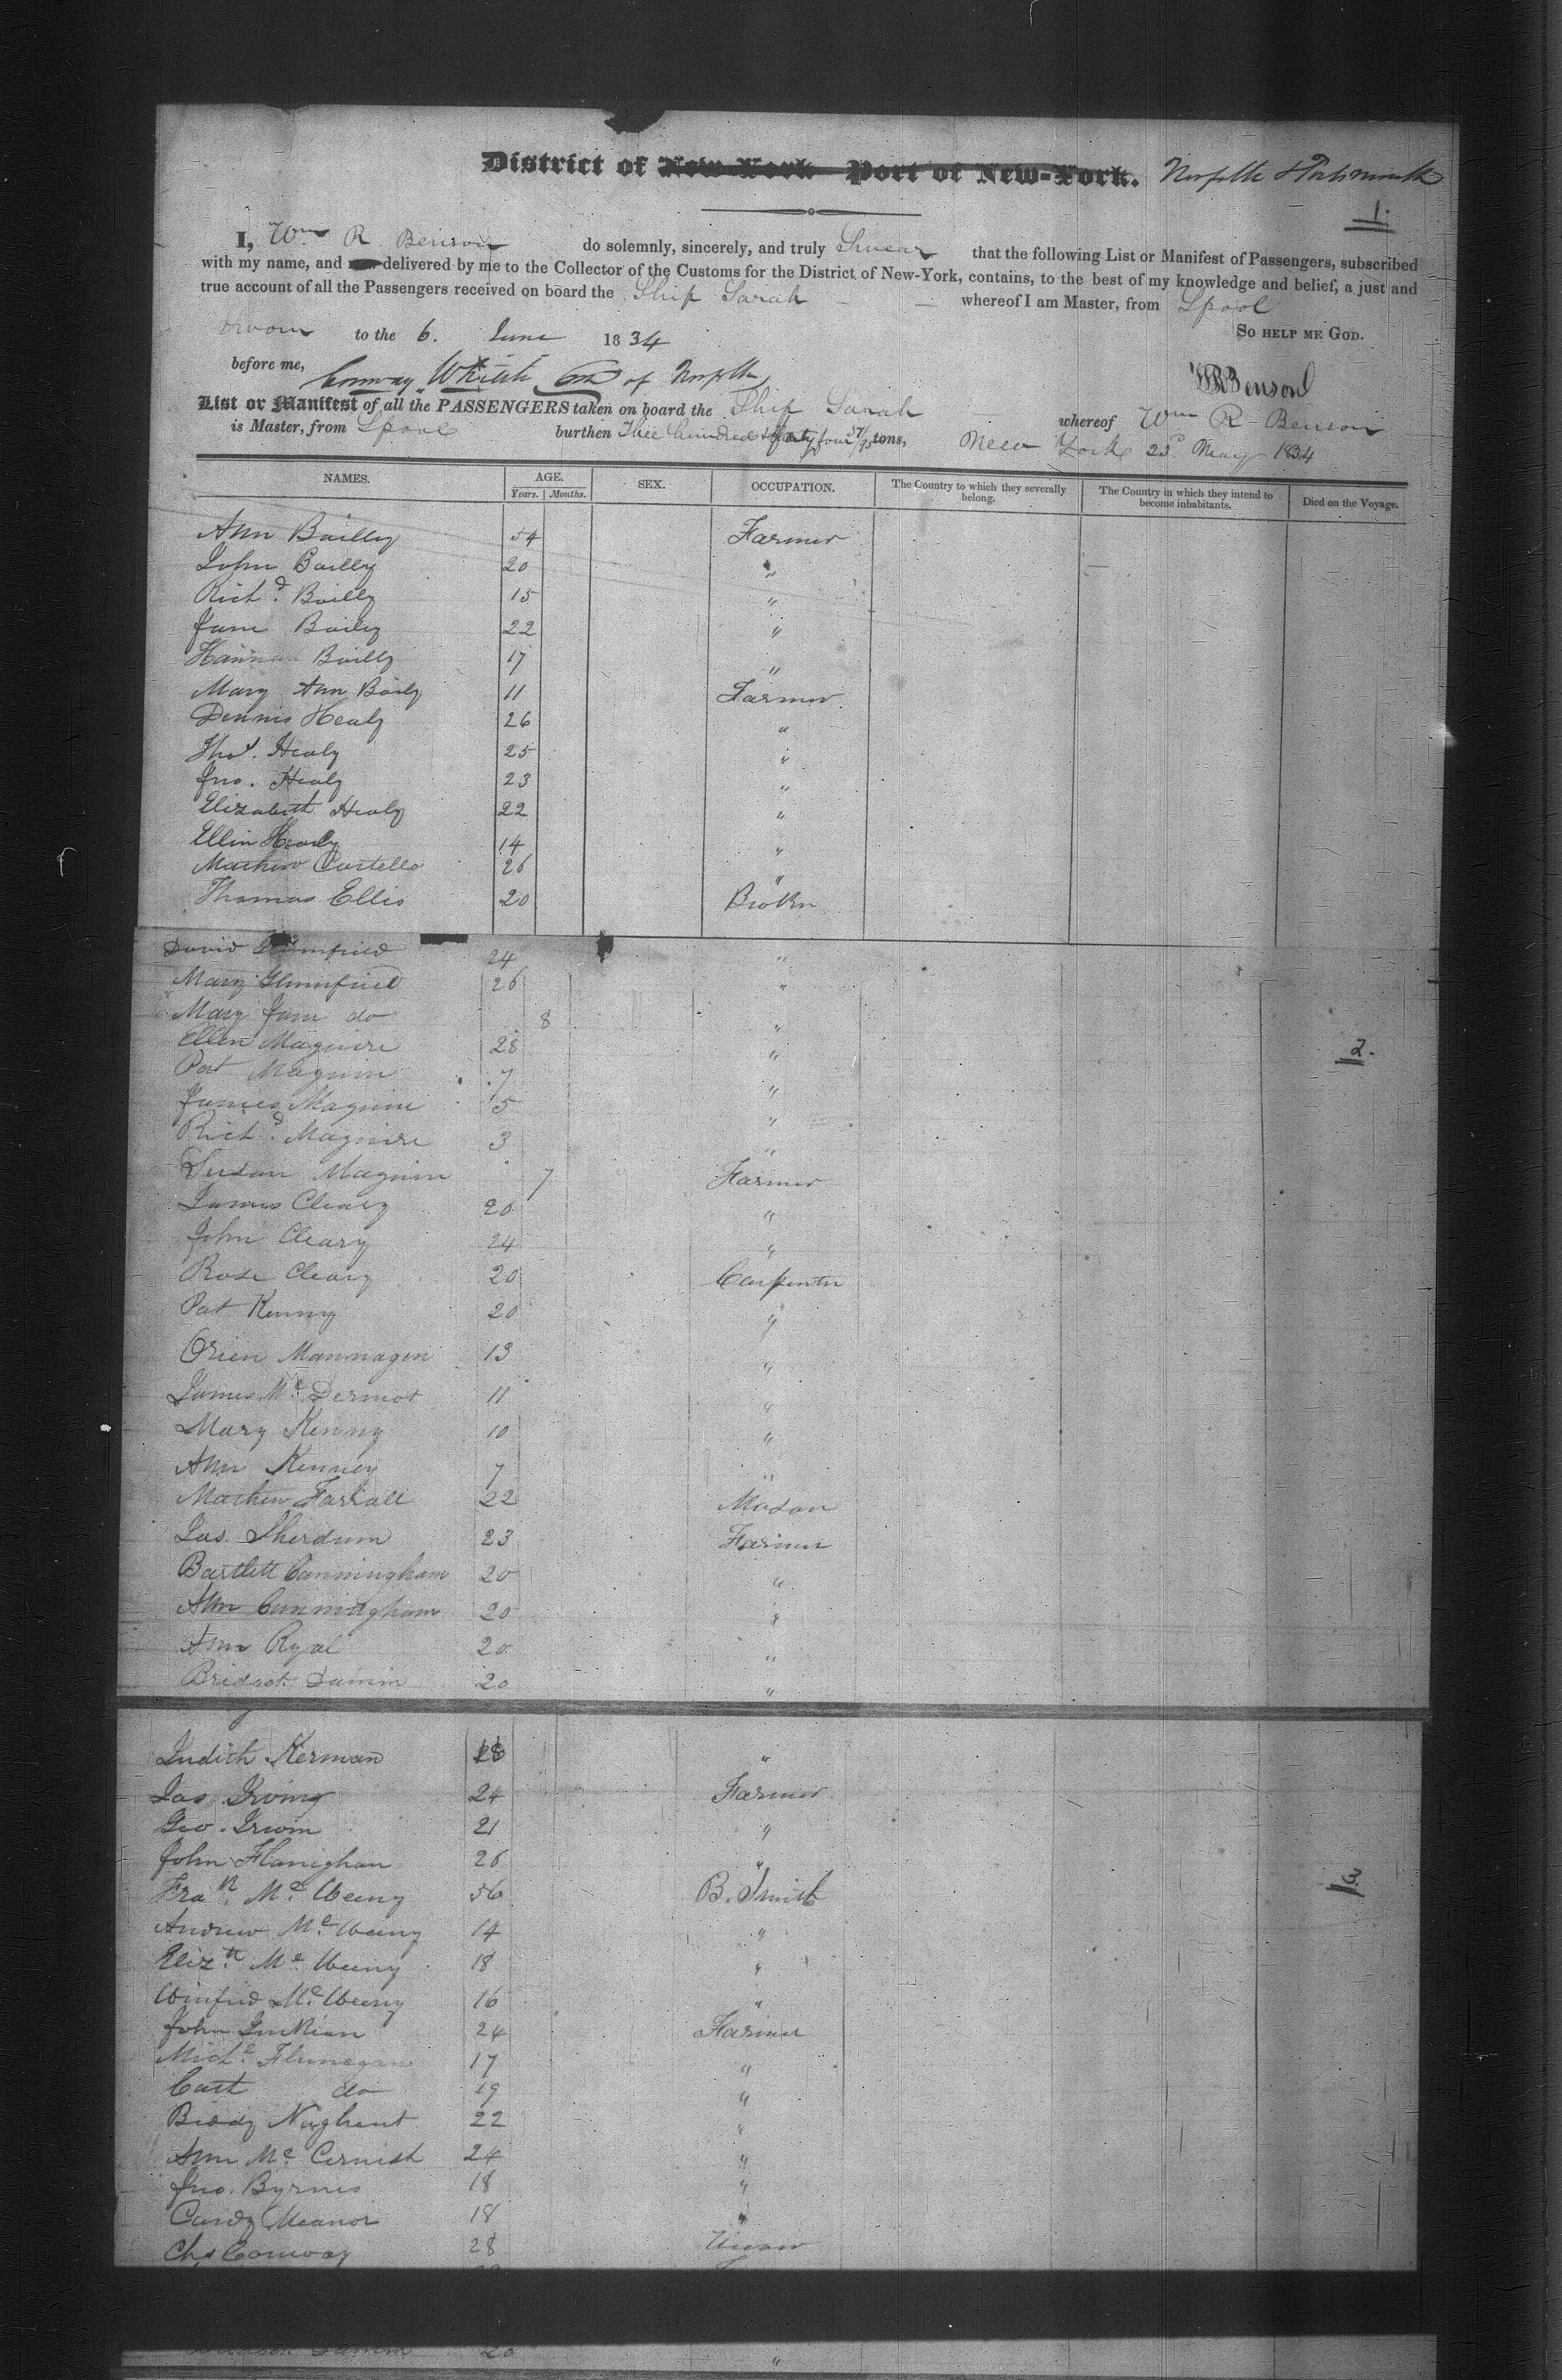 District of New-York Port of New-York. Norfolk & Portsmouth
1.
I, Wm R Benson do solemnly, sincerely, and truly Swear that the following List or Manifest of Passengers, subscribed
with my name, and delivered by me to the Collector of the Customs for the District of New-York, contains, to the best of my knowledge and belief, a just and
true account of all the Passengers received on board the Ship Sarah whereof I am Master, from Lpool
Sworn to the 6. June 1834 So HELP ME GOD.
before me, Conway Whittle of Norfolk WRBenson
List or Manifest of all the PASSENGERS taken on board the Ship Sarah whereof Wm R Benson
is Master, from Lpool burthen Three hundred & forty four 37/95 tons, New York 23d May 1834
NAMES. AGE. SEX. OCCUPATION. The Country to which they severally belong. The Country in which they intend to become inhabitants. Died on the Voyage.
Years. Months.
Ann Bailly 54 Farmer
John Bailly 20 "
Richd. Bailly 15 "
Jane Baily 22 "
Hannah Bailly 17 "
Mary Ann Baily 11 Farmer
Dennis Healy 26 "
Thos. Healy 25 "
Jno. Healy 23 "
Elizabeth Healy 22 "
Ellin Healy 14 "
Mathew Costello 26 "
Thomas Ellis 20
David 24 "
Mary 26 "
Mary Jane do 8 "
Ellen Maguire 28 "
2.
Pat Maguire 7 "
James Maguire 5 "
Richd. Maguire 3 "
Susan Maguire 7 Farmer
James Cleary 20 "
John Cleary 24 "
Rose Cleary 20 Carpenter
Pat Kenny 20 "
Orien Mannagen 13 "
James Mc Dermot 11 "
Mary Kenny 10 "
Ann Kenney 7 "
Mathew Farrall 22 Mason
Jas. Sherdum 23 Farmer
Bartlett Cunningham 20 "
Ann Cunningham 20 "
Ann Ryal 20 "
Bridget Damin 20 "
Judith Kerman "
Jas. Irving 24 Farmer
Geo. Irwin 21 "
John Flanighan 26 "
3.
Mc Weeny 56 B. Smith
Andrew Mc Weeny 14 "
Elizth. Mc Weeny 18 "
Winfred Mc Weeny 16 "
John 24 Farmer
Michl. Flunegan 17 "
Cath do 19 "
Biddy Nughent 22 "
Ann Mc Cernish 24 "
Jno. Byrnes 18 "
Candy Meanor 18 "
Chs Conway 28
20 "